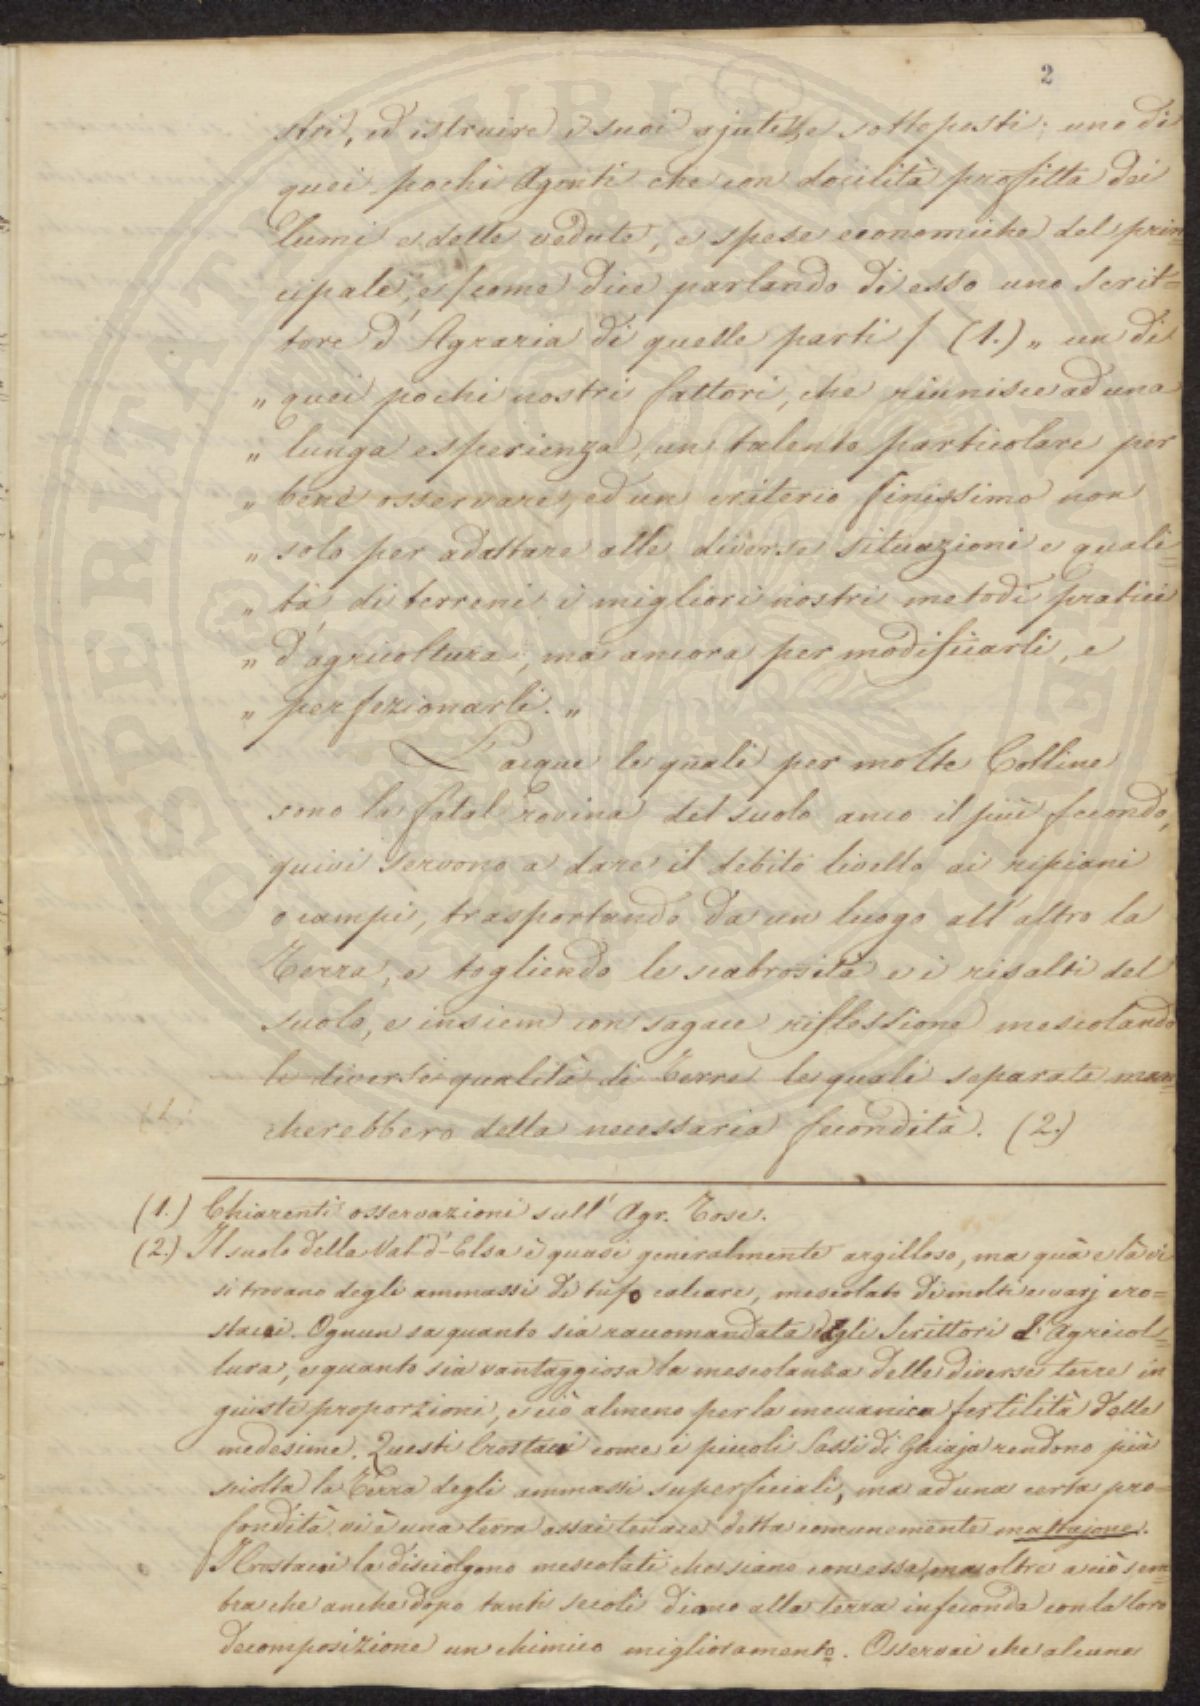 2
stri, ed istruire i suoi ajuti, e sottoposti; uno di
quei pochi Agenti che con docilità profitta dei
lumi e delle vedute, e spese economiche del prin=
cipale, e /come dice parlando di esso uno Scrit=
tore d'Agraria di quelle parti / (1.) „ un di
„ quei pochi nostri fattori, che riunisce ad una
„ lunga esperienza, un talento particolare per
„ bene osservare, ed un criterio finissimo non
„ solo per adattare alle diverse situazioni e quali=
„ tà di terreni i migliori nostri metodi pratici
„ d'agricoltura, ma ancora per modificarli, e
„ perfezionarli. „
L'acque le quali per molte Colline
sono la fatal rovina del suolo anco il più fecondo,
quivi servono a dare il debito livello ai ripiani
o campi, trasportando da un luogo all'altro la
Terra, e togliendo le scabrosità e i risalti del
suolo, e insiem con sagace riflessione mescolando
le diverse qualità di Terre le quali separate man=
cherebbero della necessaria fecondità. (2.)
(1.) Chiarenti osservazioni sull' Agr. Tosc.
(2.) Il suolo della Val d'Elsa è quasi generalmente argilloso, ma quà e là vi
si trovano degli ammassi di tufo calcare, mescolato di molti e varj cro=
stacei. Ognun sa quanto sia raccomandata dagli Scrittori d'Agricol=
tura, e quanto sia vantaggiosa la mescolanza delle diverse terre in
giuste proporzioni, e ciò almeno per la meccanica fertilità delle
medesime. Questi Crostacei come i piccoli Sassi di Ghiaja rendono più
sciolta la Terra degli ammassi superficiali, ma ad una certa pro=
fondità vi è una terra assai tenace detta comunemente mattajone.
I Crostacei la disciolgono mescolati che siano con essa, ma oltre a ciò sem=
bra che anche dopo tanti secoli diano alla terra infeconda con la loro
decomposizione un chimico miglioramento. Osservai che alcune
PROSPERITATI PUBLICAE AUGENDAE